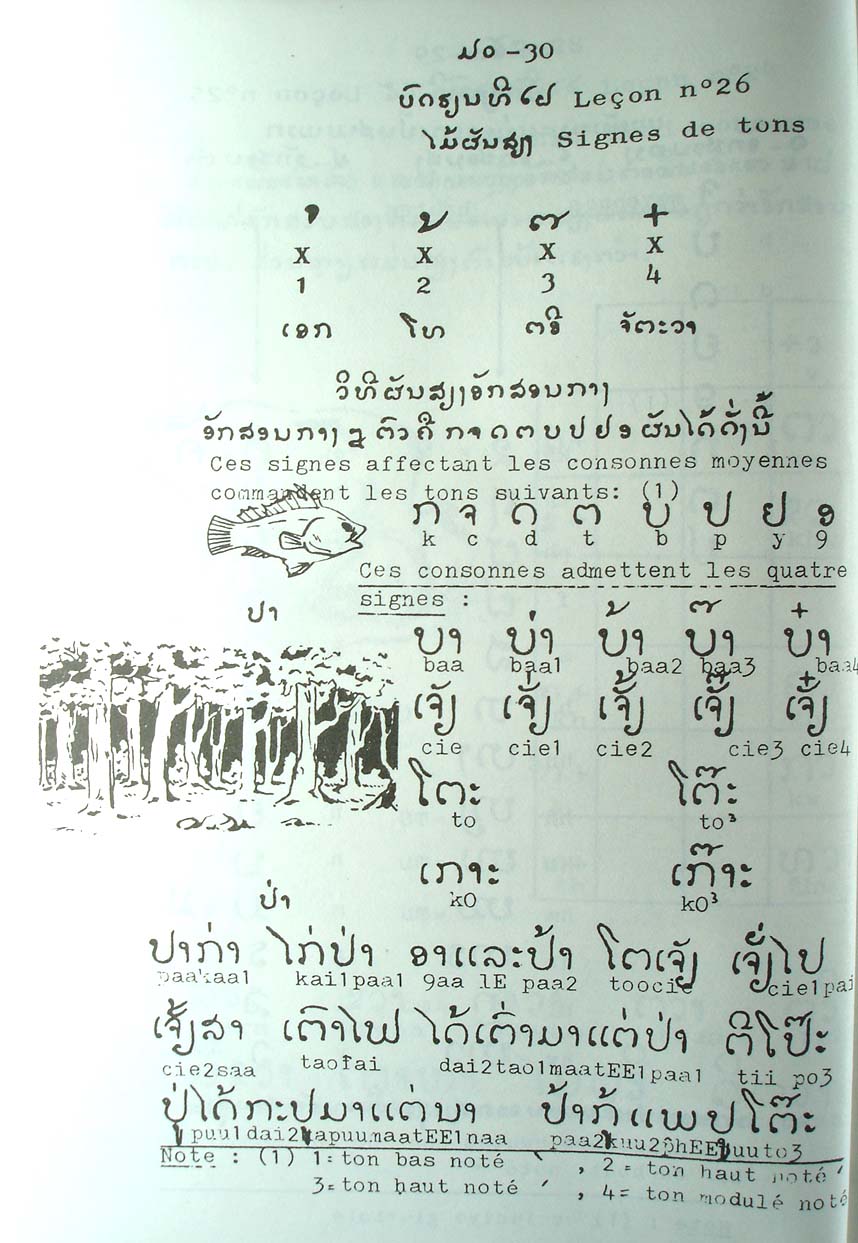 ມ໐ -30
ບົດຮຽນທີ ໒໖ Leçon nº26
ໄມ້ຜັນສຽງ Signes de tons
່ ້ ໊ ໋
X X X X
1 2 3 4
ເອກ ໂທ ຕຣີ ຈັຕະວາ
ວິທີຜັນສຽງອັກສອນກາງ
ອັກສອນກາງ ໘ ຕົວຄື ກ ຈ ດ ຕ ບ ປ ຢ ອ ຜັນໄດ້ດັ່ງນີ້
Ces signes affectant les consonnes moyennes
commandent les tons suivants: (1)
ກ ຈ ດ ຕ ບ ປ ຢ ອ
k c d t b p y 9
Ces consonnes admettent les quatre
signes :
ປາ
ບາ ບ່າ ບ້າ ບ໊າ ບ໋າ
baa baa1 baa2 baa3 baa4
ເຈັຽ ເຈັ່ຽ ເຈັ້ຽ ເຈັ໊ຽ ເຈັ໋ຽ
cie cie1 cie2 cie3 cie4
ໂຕະ ໂຕ໊ະ
to to³
ເກາະ ເກ໊າະ
kO kO³
ປ່າ
ປາກ່າ ໄກ່ປ່າ ອາແລະປ້າ ໂຕເຈັຽ ເຈັ່ຽໄປ
paakaa1 kai1paa1 9aa lE paa2 toocie cie1pai
ເຈັ້ຽສາ ເຕົາໄຟ ໄດ້ເຕົ່າມາແຕ່ປ່າ ຕີໂປ໊ະ
cie2saa taofai dai2tao1maatEE1paa1 tii po3
ປູ່ໄດ້ກະປູມາແຕ່ນາ ປ້າກູ້ແພປູໂຕ໊ະ
puu1dai2kapuumaatEE1naa paa2kuu2phEEpuuto3
Note : (1) 1= ton bas noté ` , 2 = ton haut noté ´
3= ton haut noté ´ , 4= ton modulé noté